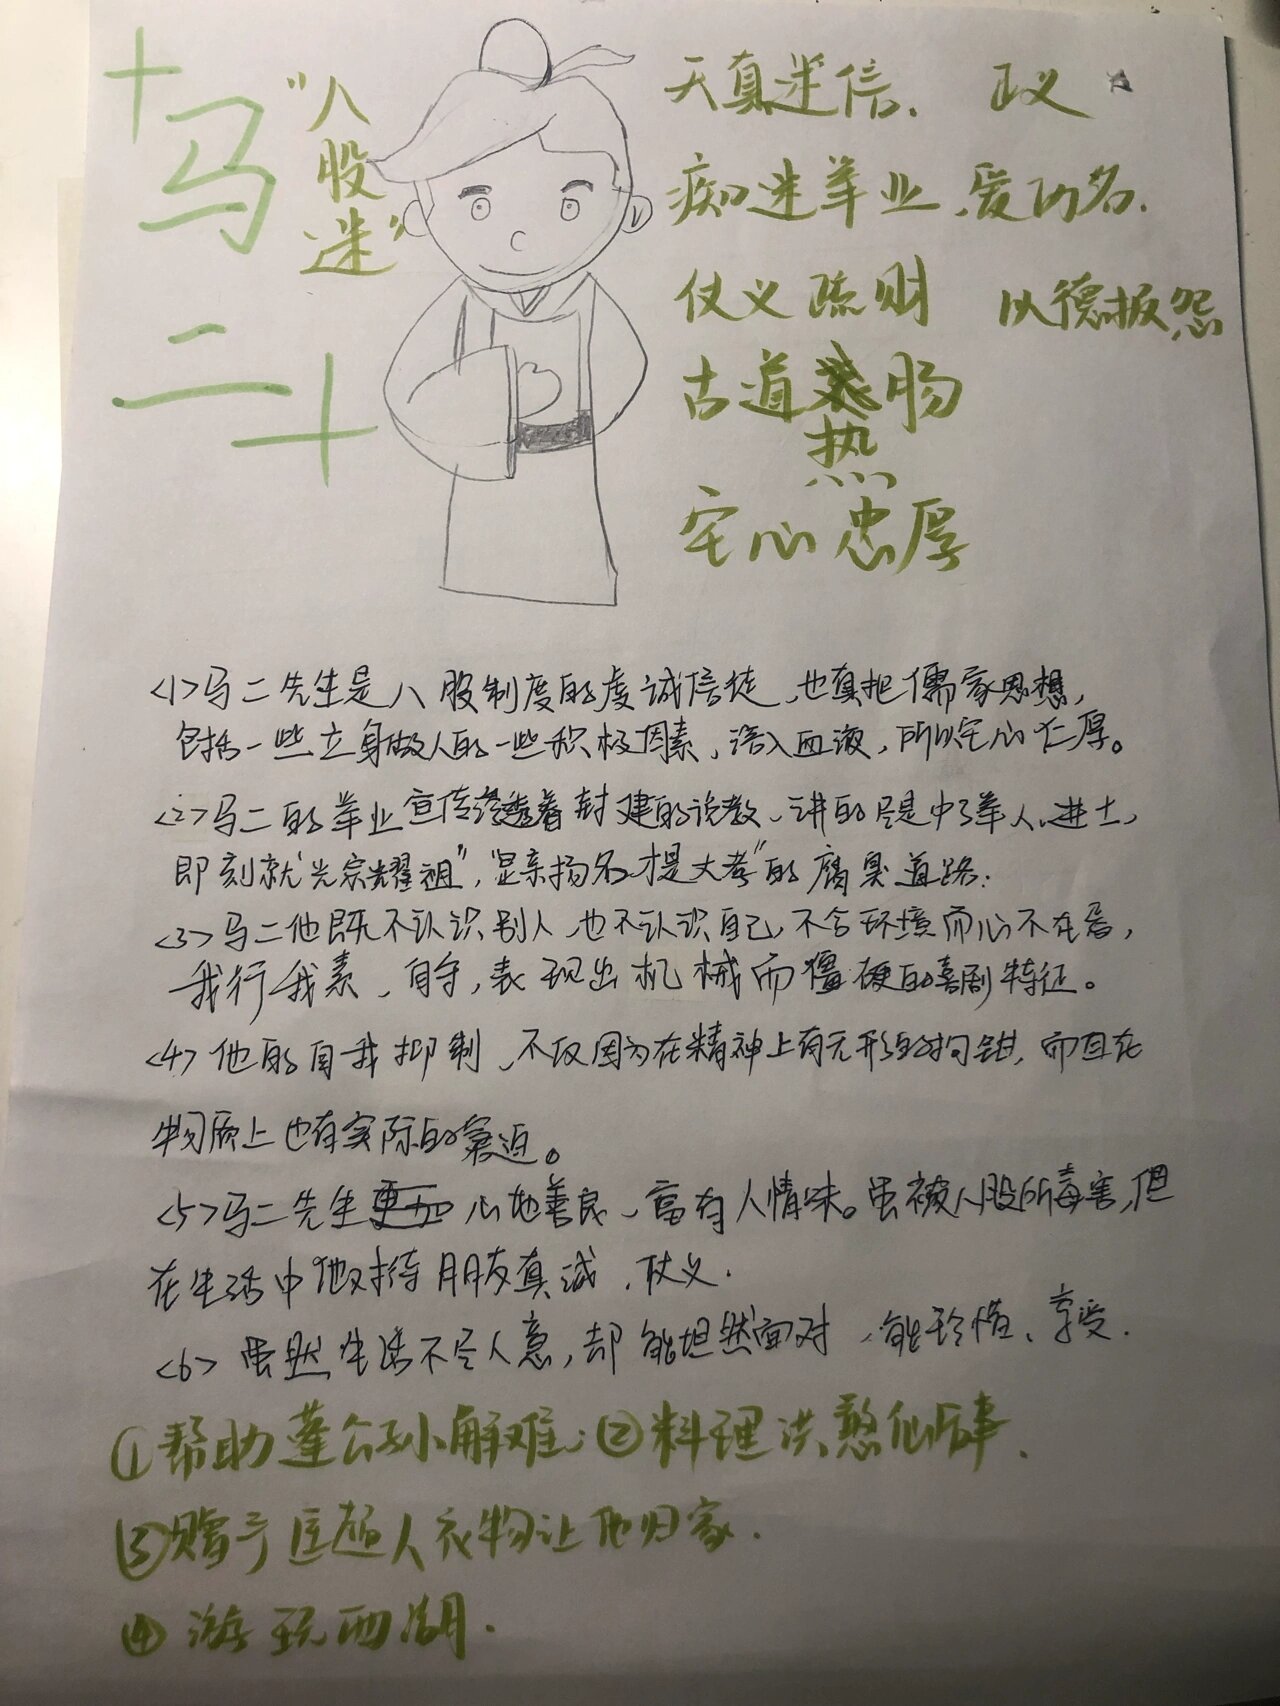 马二
"八股迷"
天真迷信、 正义
痴迷举业、爱功名.
仗义疏财 以德报怨
古道热肠
宅心忠厚
<1>马二先生是八股制度的虔诚信徒,也真把儒家思想,
包括一些立身做人的一些积极因素,溶入血液,所以宅心仁厚。
<2>马二的举业宣传渗透着封建的说教、讲的尽是中了举人、进士,
即刻就"光宗耀祖","显亲扬名才是大孝"的腐臭道路;
<3>马二他既不认识别人,也不认识自己,不合环境而心不在焉,
我行我素、自字,表现出机械而僵硬的喜剧特征。
<4>他的自我抑制、不仅因为在精神上有无形的拘钳,而且在
物质上也有实际的窘迫。
<5>马二先生心地善良、富有人情味。虽被八股所毒害,但
在生活中他对待朋友真诚、仗义.
<6>虽然生活不尽人意,却能坦然面对、能珍惜、享受.
①帮助蘧公孙解难;②料理洪憨仙后事.
③赠予匡超人衣物让他归家.
④游玩西湖.